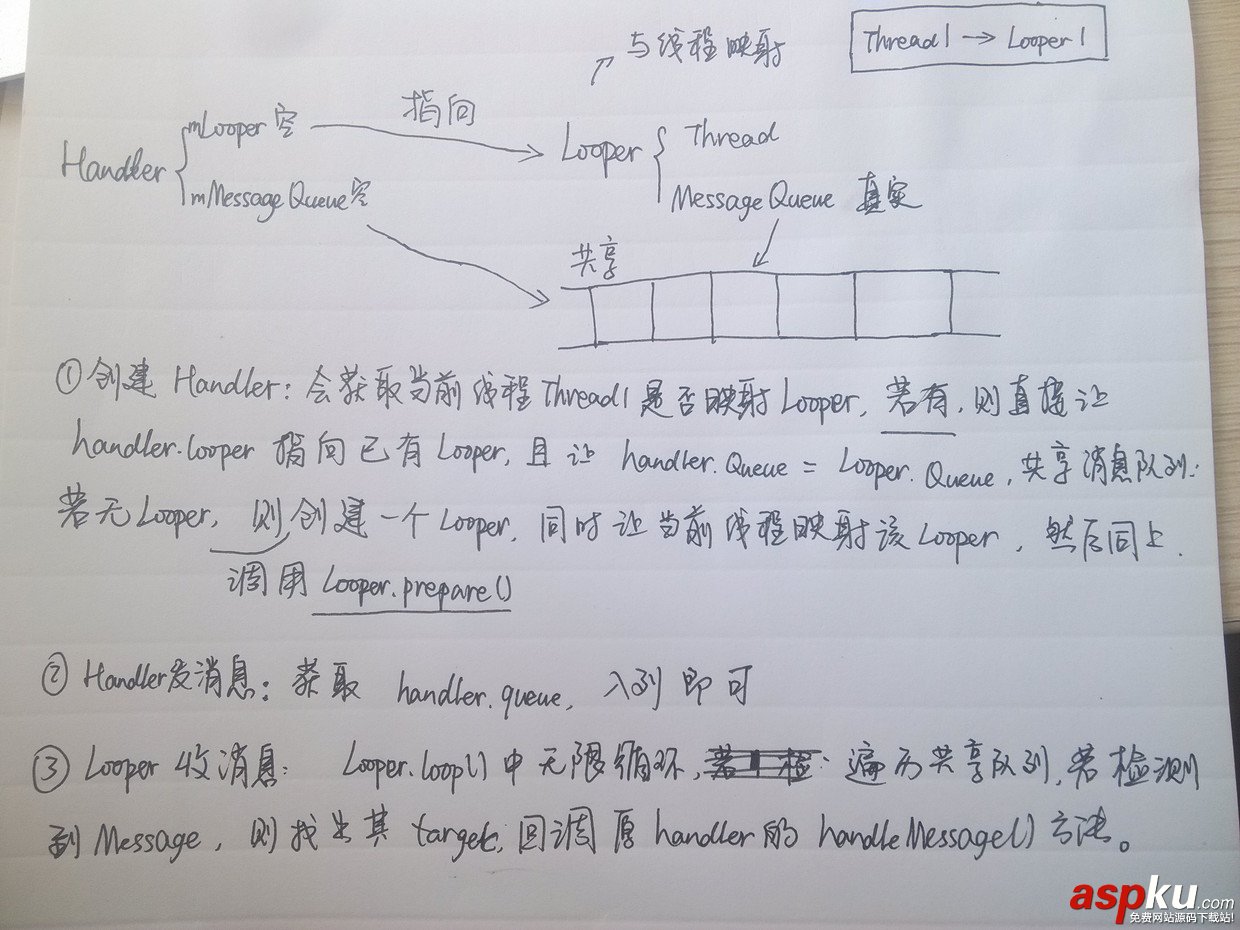 与线程映射
Thread1 → Looper1
Handler
mLooper 空
指向
Looper
Thread
mMessageQueue空
MessageQueue 真实
共享
①创建 Handler: 会获取当前线程Thread1是否映射Looper, 若有, 则直接让
handler.looper 指向已有Looper, 且让 handler.Queue = Looper.Queue, 共享消息队列;
若无Looper, 则创建一个Looper, 同时让当前线程映射该Looper, 然后同上.
调用 Looper.prepare()
② Handler发消息: 获取 handler.queue, 入列即可
③ Looper 收消息: Looper.loop()中无限循环, 遍历共享队列, 若检测
到Message, 则找出其 target, 回调原handler的 handleMessage()方法。
aspku.com
免费网站源码下载站!